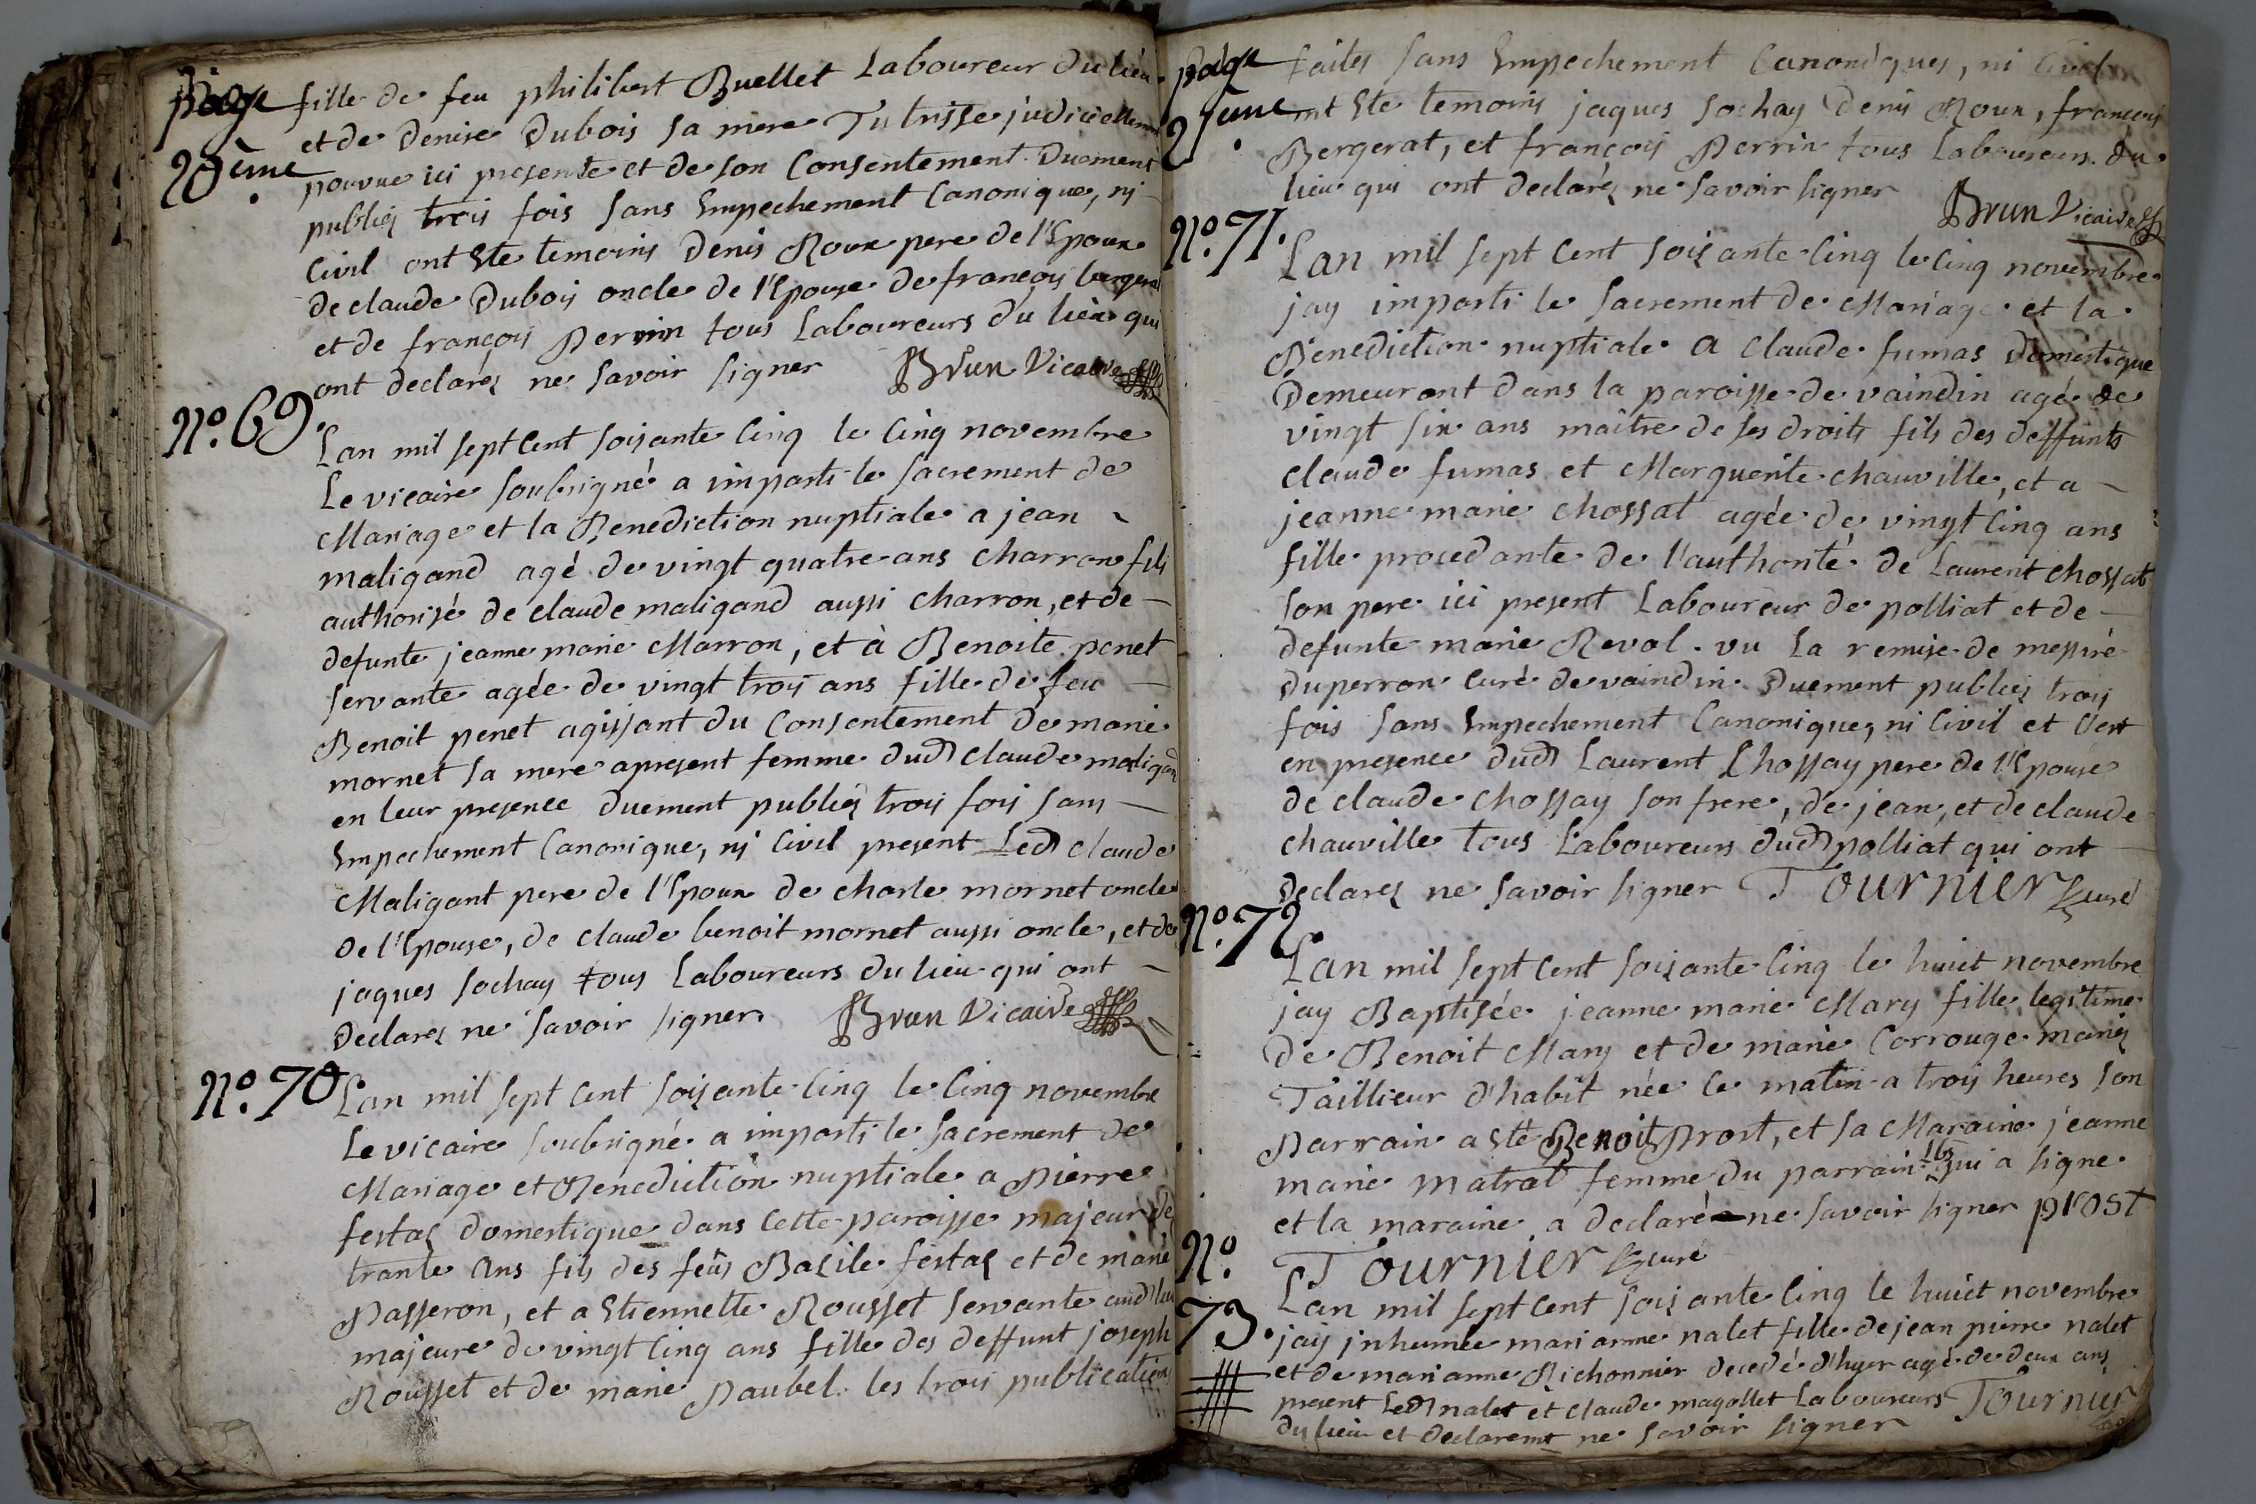 page
20eme
fille de feu philibert Buellet Laboureur du lieu
et de denise Dubois sa mere Tutrisse judiciellement
pourvue ici presente et de son Consentement. Duement
publiéz trois fois sans Empechement Canonique, ni
Civil ont Ete temoins Denis Roux pere de l'Epoux
de claude Dubois oncle de l'Epouse de françois bergerat
et de françois Perrin tous Laboureurs du lieu qui
ont declaréz ne savoir signer Brun Vicaire
No. 69.
Lan mil sept Cent soisante Cinq le Cinq novembre
Le vicaire soubsigné a imparti le sacrement de
Mariage et la Benediction nuptiale a jean
maligand agé de vingt quatre ans charron fils
authorisé de claude maligand aussi charron, et de
defunte jeanne marie Marron, et à Benoite penet
servante agée de vingt trois ans fille de feu
Benoit penet agissant du Consentement de marie
mornet sa mere apresent femme dud claude maligand
en leur presence duement publiéz trois fois sans
Empechement Canonique, ni Civil present Led claude
Maligant pere de l'Epoux de charle mornet oncle
de l'Epouse, de claude benoit mornet aussi oncle, et de
jaques sochay tous Laboureurs du lieu qui ont
Declaréz ne savoir signer Brun Vicaire
No. 70
Lan mil sept Cent soisante Cinq le Cinq novembre
Le vicaire soubsigné a imparti le sacrement de
Mariage et Benediction nuptiale a Pierre
festaz domestique dans Cette paroisse majeur de
trante Ans fils des feûs Bazile festaz et de marie
Passeron, et a Etiennette Rousset servante aud lieu
majeure de vingt Cinq ans fille des deffunt joseph
Rousset et de marie Paubel. les trois publications
page
21eme
faites sans Empechement Canoniques, ni Civil
ont Ete temoins jaques sochay Denis Roux, françois
Bergerat, et françois Perrin tous Laboureurs du
lieu qui ont declaréz ne savoir signer
Brun Vicaire
No. 71.
Lan mil sept Cent soisante Cinq le Cinq novembre
jay imparti le sacrement de Mariage et la
Benediction nuptiale a claude fumas Domestique
Demeurant dans la paroisse de vaindin agé de
vingt six ans maitre de ses droits fils des deffunts
claude fumas et Marguerite chauville, et a
jeanne marie chossat agée de vingt Cinq ans
fille procedante de l'authorité de Laurent chossat
son pere ici present Laboureur de polliat et de
defunte marie Reval. vu la remise de messire
Duperron Curé de vaindin. Duement publiéz trois
fois sans Empechement Canonique, ni Civil et C'est
en presence dud Laurent Chossay pere de l'Epouse
de claude chossay son frere, de jean, et de claude
chauville tous Laboureurs dud polliat qui ont
declaréz ne savoir signer Tournier Curé
No. 72
Lan mil sept Cent soisante Cinq le huict novembre
jay Baptisée jeanne marie Mary fille legitime
de Benoit Mary et de marie Corrouge mariéz
Taillieur d'habit née Ce matin a trois heures son
Parrain a Eté Benoit Prost, et sa Maraine jeanne
marie matrat femme du parrain qui a signe
et la maraine a declaré ne savoir signer prost
Tournier Curé
No. 73.
Lan mil sept Cent soisante Cinq le huict novembre
jaij jnhumée marianne nalet fille de jean pierre nalet
et de marianne Richonnier decedé d'hyer agé de deux ans
present Led nalet et claude magollet Laboureurs
du lieu et declarerent ne savoir signer Tournier